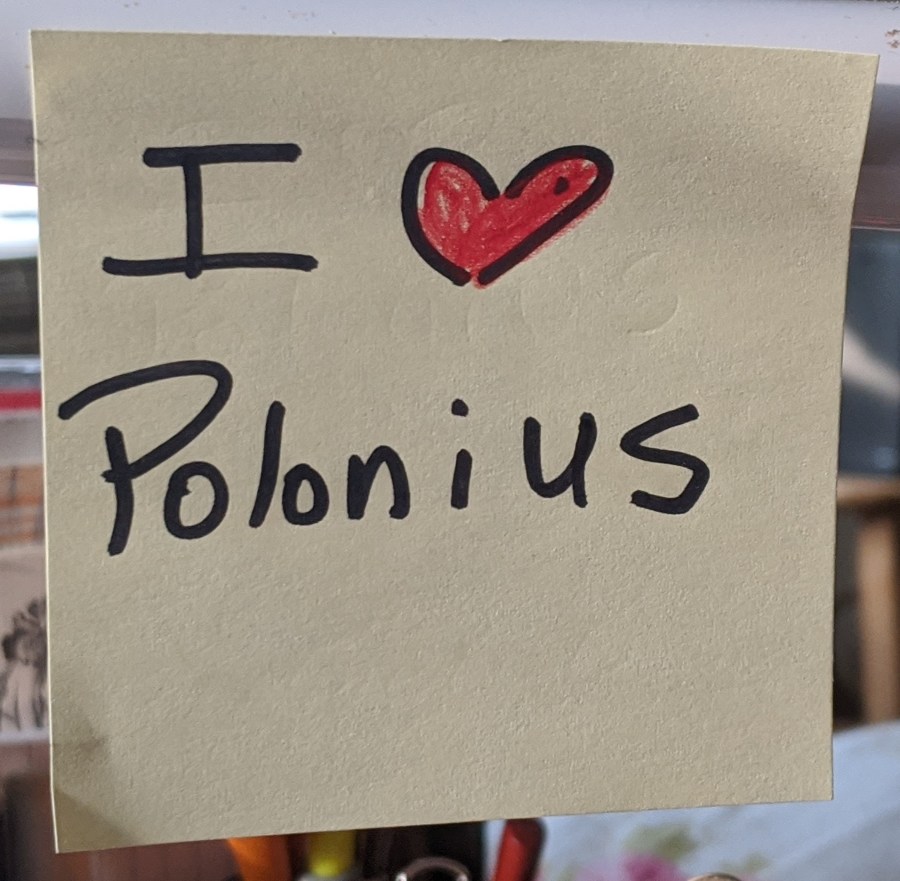 I ❤
Polonius